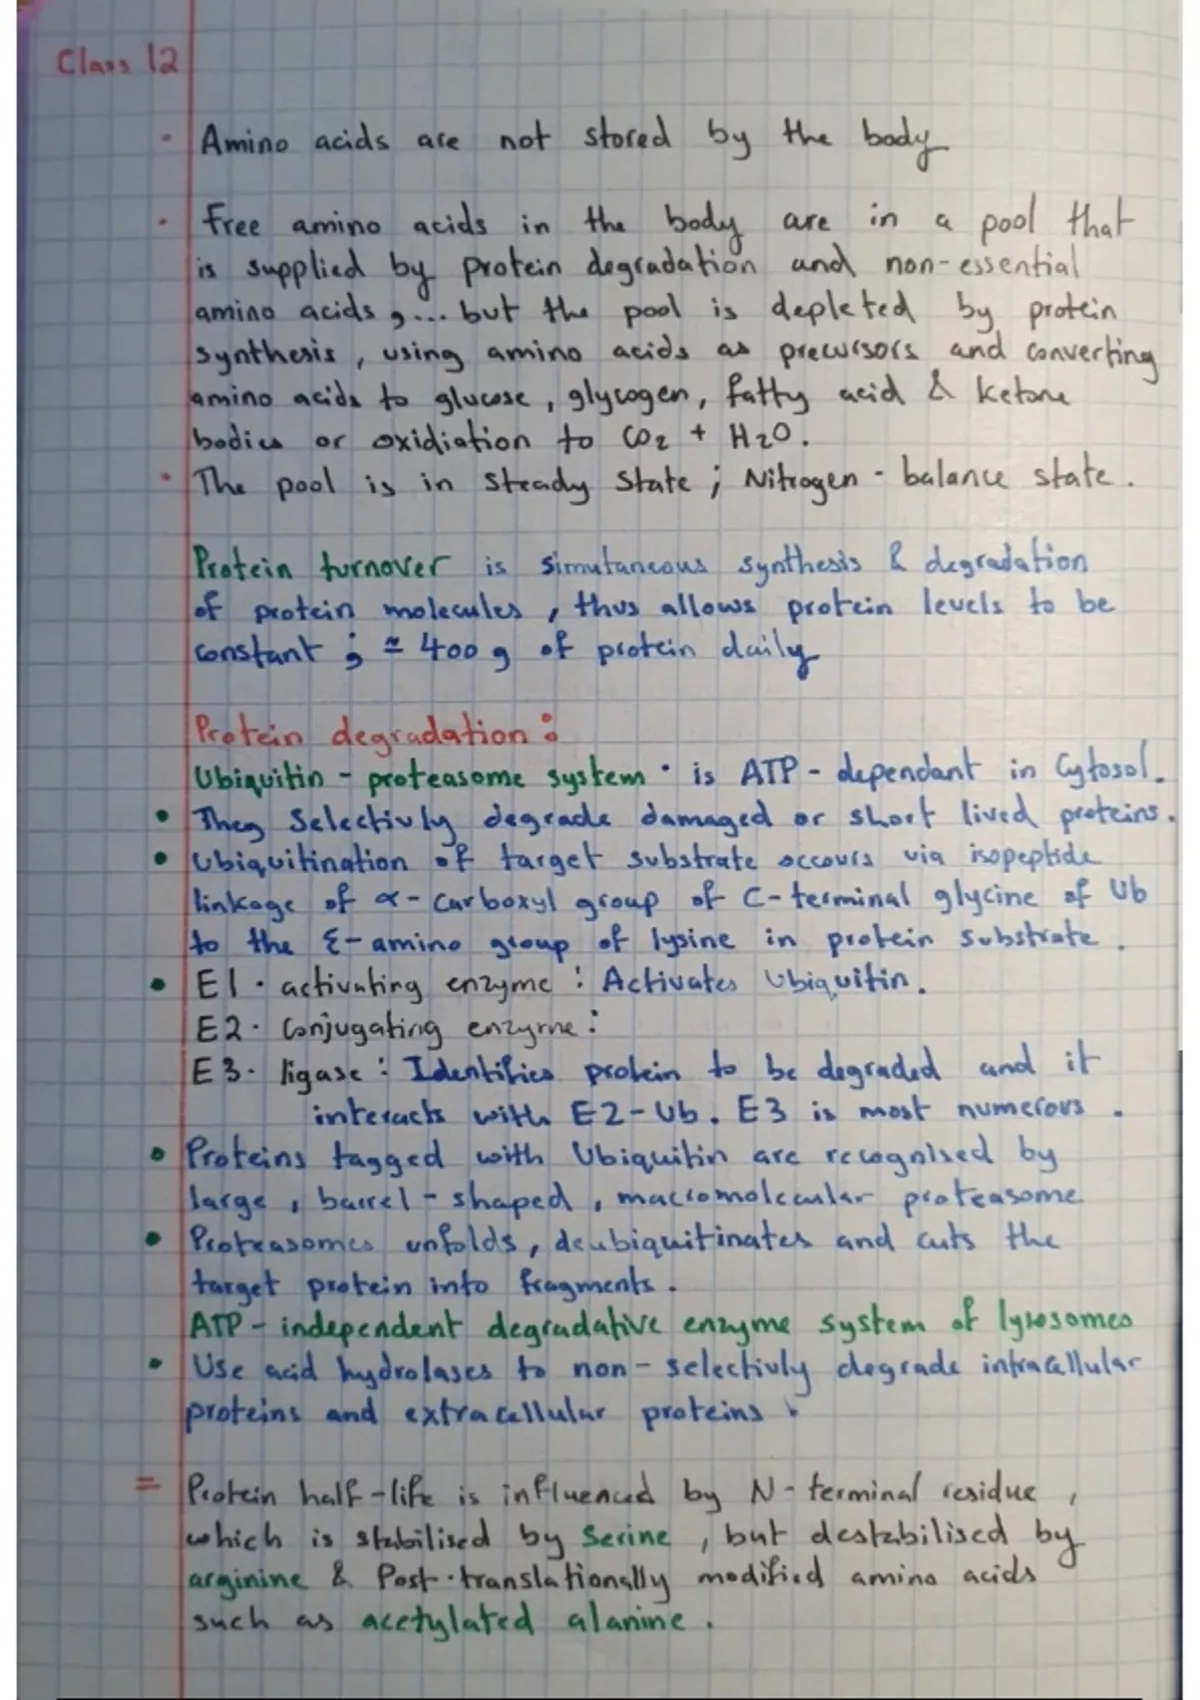 Class 12
• Amino acids are not stored by the body
• Free amino acids in the body are in a pool that
is supplied by protein degradation and non-essential
amino acids ,... but the pool is depleted by protein
synthesis , using amino acids as precursors and converting
amino acids to glucose , glycogen, fatty acid & ketone
bodies or oxidiation to CO2 + H2O.
• The pool is in steady state ; Nitrogen - balance state .
Protein turnover is simutaneous synthesis & degradation
of protein molecules , thus allows protein levels to be
constant ; ≃ 400 g of protein daily
Protein degradation :
Ubiquitin - proteasome system • is ATP - dependant in Cytosol.
• They Selectivly degrade damaged or short lived proteins.
• Ubiquitination of target substrate occours via isopeptide
linkage of α- carboxyl group of C- terminal glycine of Ub
to the ε- amino group of lysine in protein substrate .
• E1 • activating enzyme : Activates Ubiquitin.
E2 • Conjugating enzyme :
E3 • ligase : Identifies protein to be degraded and it
interacts with E2-Ub. E3 is most numerous .
• Proteins tagged with Ubiquitin are recognised by
large , barrel - shaped , macromolecular proteasome
• Proteasomes unfolds, deubiquitinates and cuts the
target protein into fragments .
ATP - independent degradative enzyme system of lysosomes
• Use acid hydrolases to non - selectivly degrade intracellular
proteins and extracellular proteins .
= Protein half-life is influenced by N- terminal residue ,
which is stabilised by Serine , but destabilised by
arginine & Post • translationally modified amino acids
such as acetylated alanine .